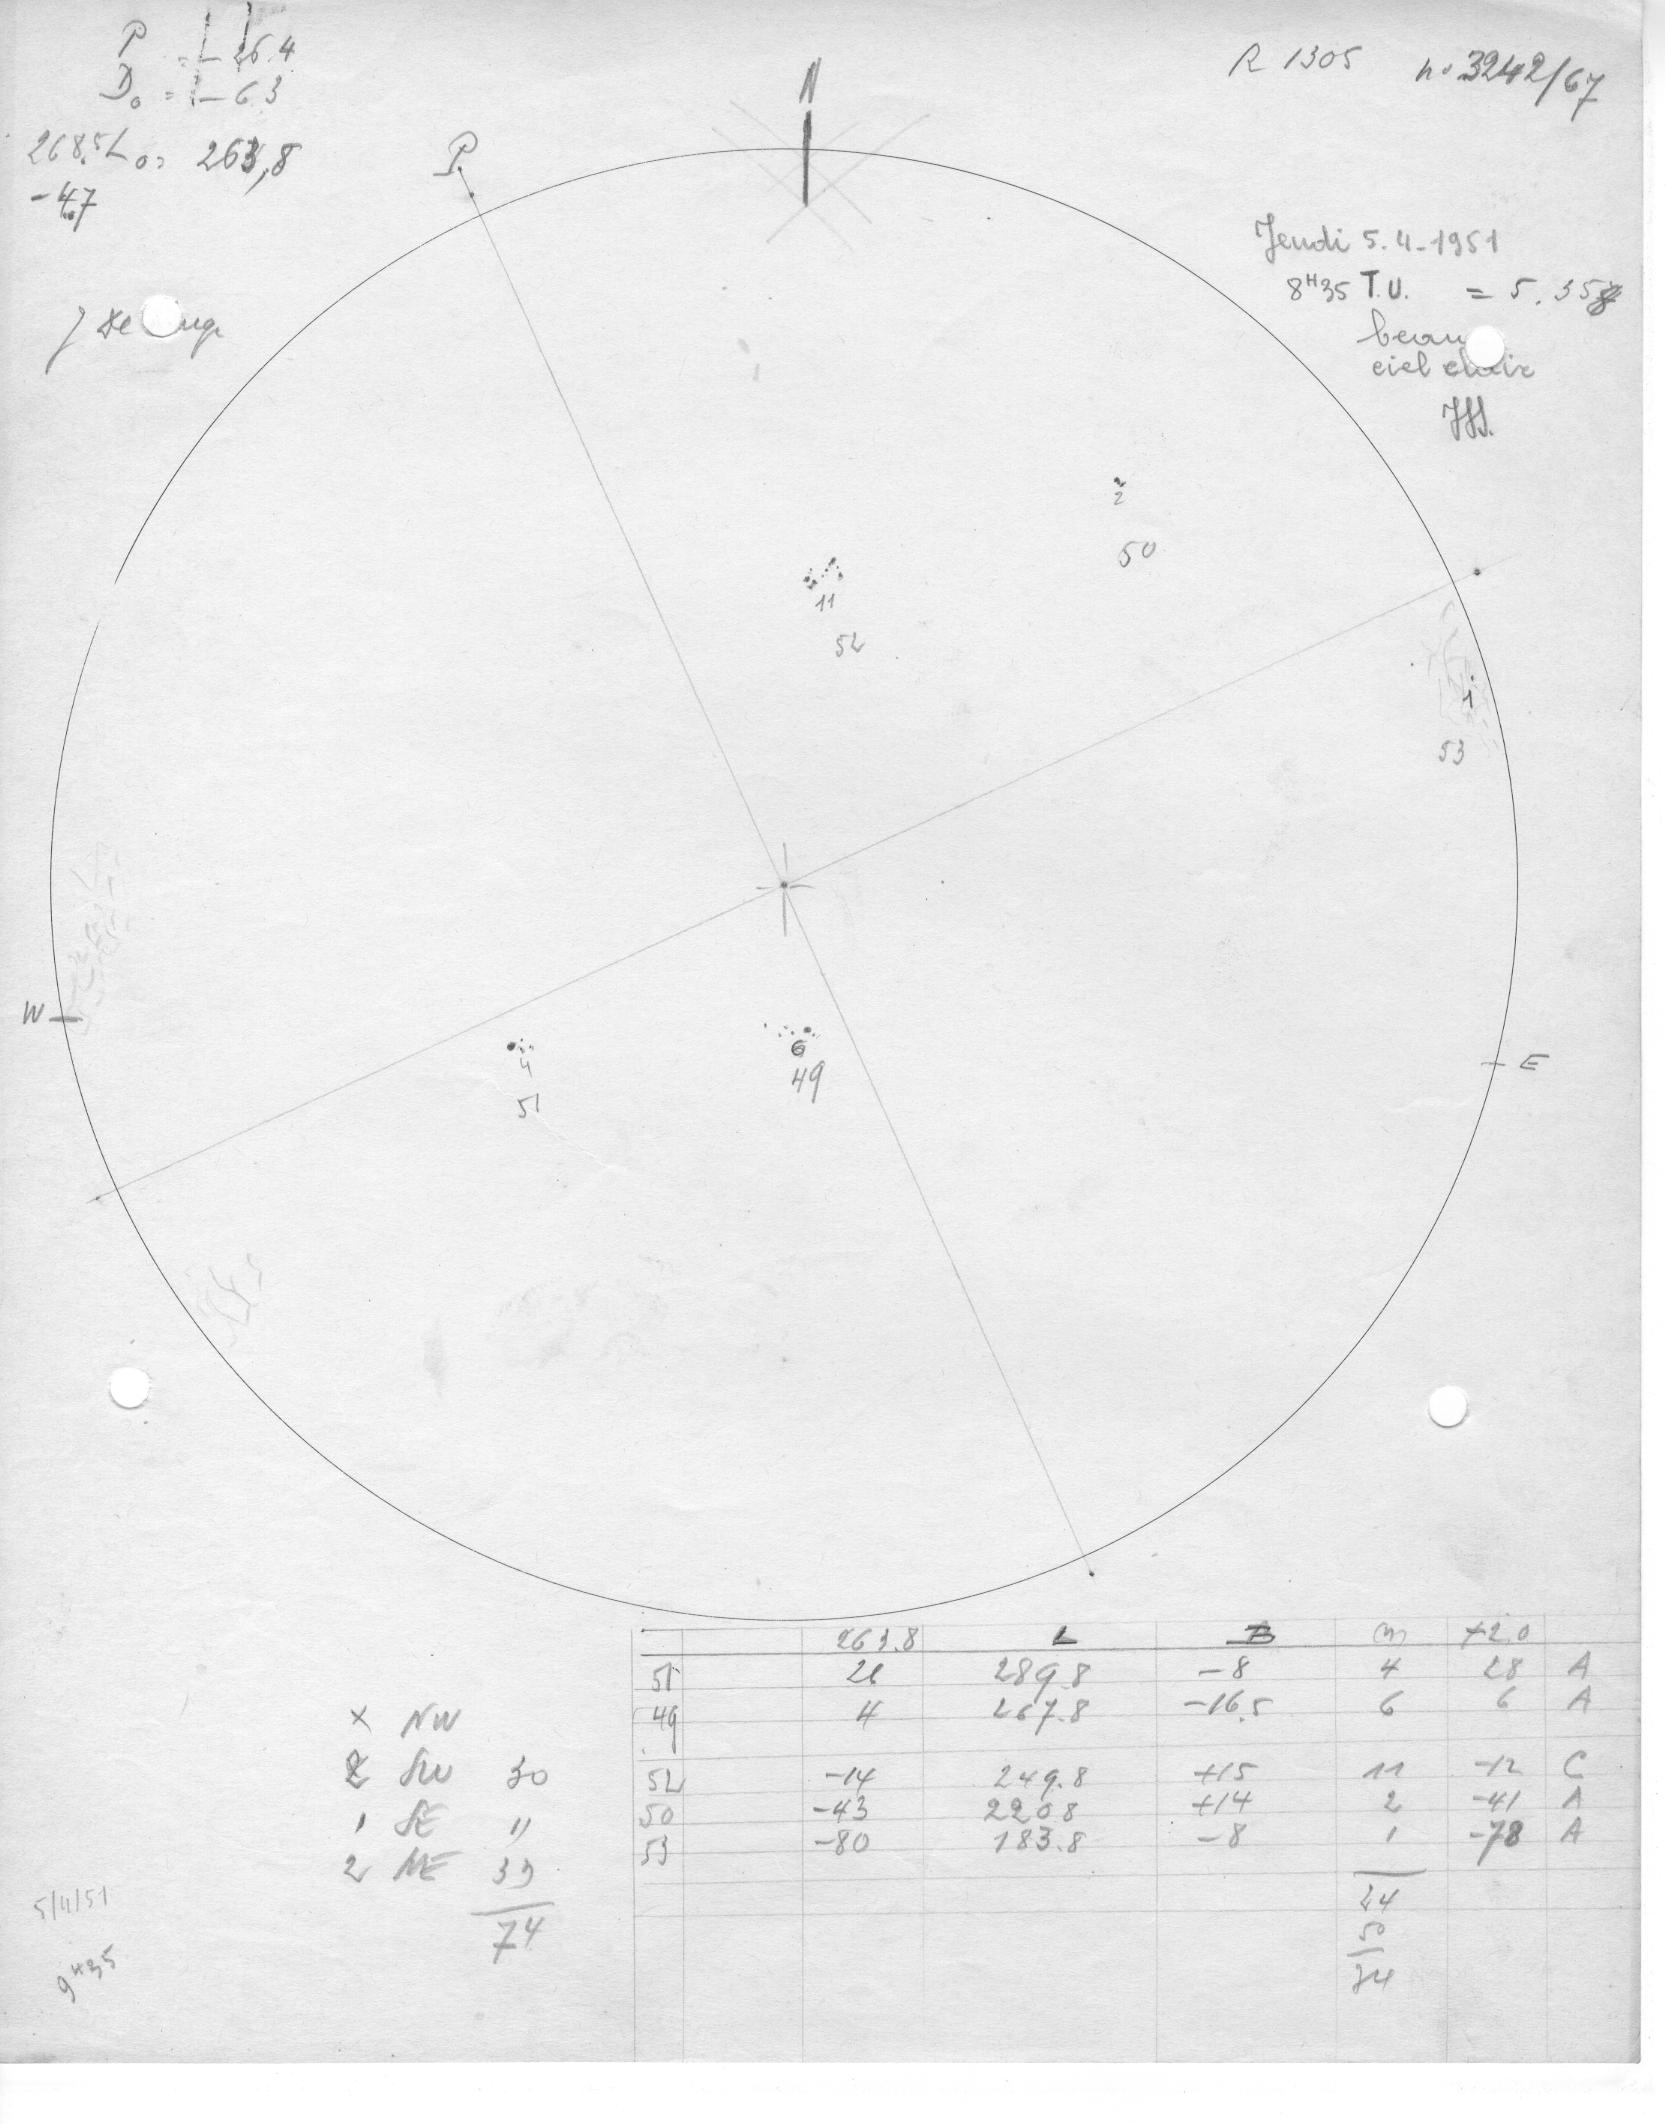 P = -26.4
D₀ = -6 3
268.5 L₀ = 263,8
-4.7
N
P
R 1305 n° 3242/67
Jeudi 5.4-1951
8H35 T.U. = 5.358
beau
ciel clair
2
50
11
52
1
53
W
E
4
51
6
49
263.8 L B m +2.0
51 26 289.8 -8 4 28 A
49 4 267.8 -16.5 6 6 A
52 -14 249.8 +15 11 -12 C
50 -43 220.8 +14 2 -41 A
53 -80 183.8 -8 1 -78 A
24
50
74
x NW
2 SW 30
1 SE "
2 NE
74
5/4/51
9H35